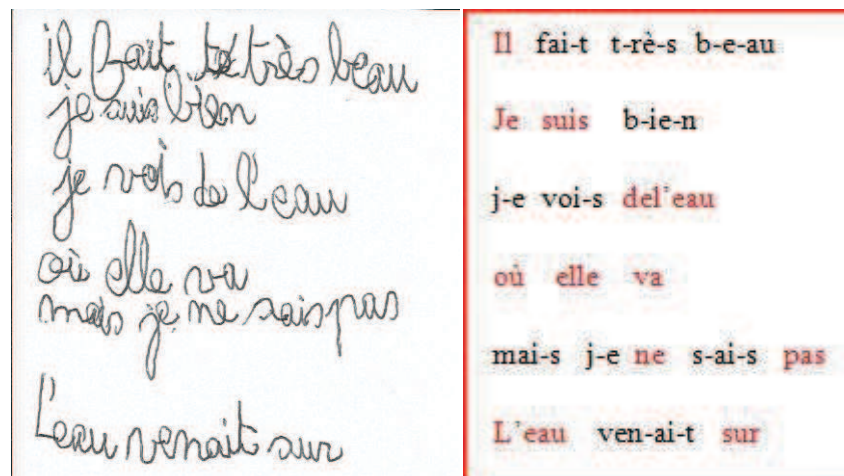 il fait te très beau
je suis bien
je vois de l'eau
où elle va
mais je ne sais pas
L'eau venait sur
Il fai-t t-rè-s b-e-au
Je suis b-ie-n
j-e voi-s del'eau
où elle va
mai-s j-e ne s-ai-s pas
L'eau ven-ai-t sur